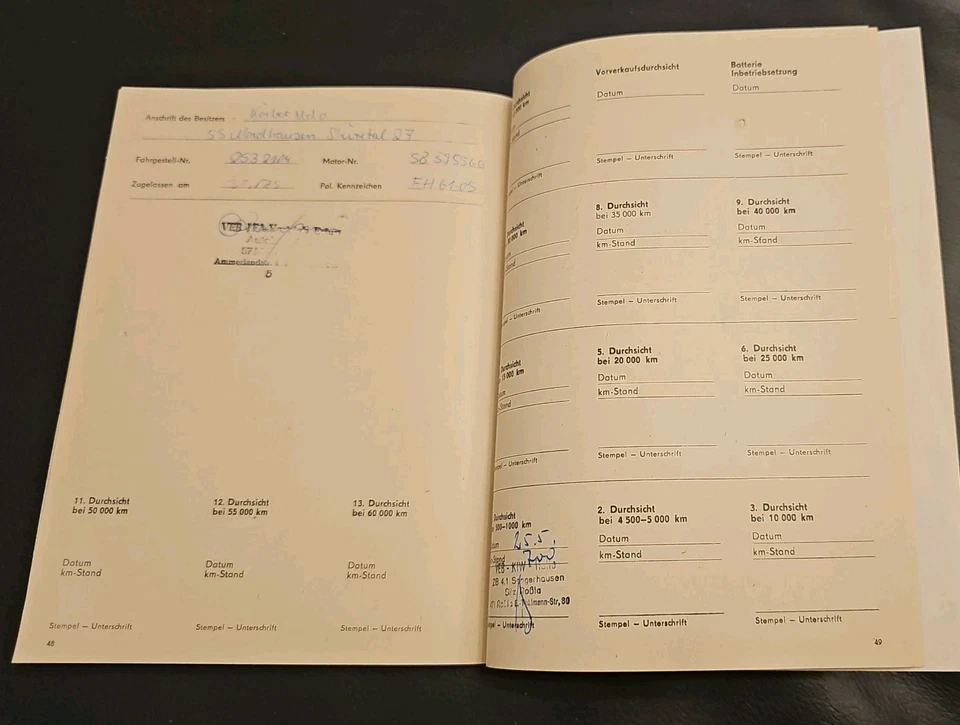 Anschrift des Besitzers
55 Nordhausen
Fahrgestell-Nr. Motor-Nr.
Zugelassen am Pol. Kennzeichen
VEB
Ammerlandstr.
5
11. Durchsicht
bei 50 000 km
12. Durchsicht
bei 55 000 km
13. Durchsicht
bei 60 000 km
Datum
km-Stand
Datum
km-Stand
Datum
km-Stand
Stempel – Unterschrift
Stempel – Unterschrift
Stempel – Unterschrift
48
Vorverkaufsdurchsicht
Datum
Stempel – Unterschrift
Batterie
Inbetriebsetzung
Datum
Stempel – Unterschrift
8. Durchsicht
bei 35 000 km
Datum
km-Stand
Stempel – Unterschrift
9. Durchsicht
bei 40 000 km
Datum
km-Stand
Stempel – Unterschrift
5. Durchsicht
bei 20 000 km
Datum
km-Stand
Stempel – Unterschrift
6. Durchsicht
bei 25 000 km
Datum
km-Stand
Stempel – Unterschrift
Durchsicht
500–1000 km
25.5.
700
VEB - KIW
ZB 4.1 Sangerhausen
Roßla
2. Durchsicht
bei 4 500–5 000 km
Datum
km-Stand
Stempel – Unterschrift
3. Durchsicht
bei 10 000 km
Datum
km-Stand
Stempel – Unterschrift
49